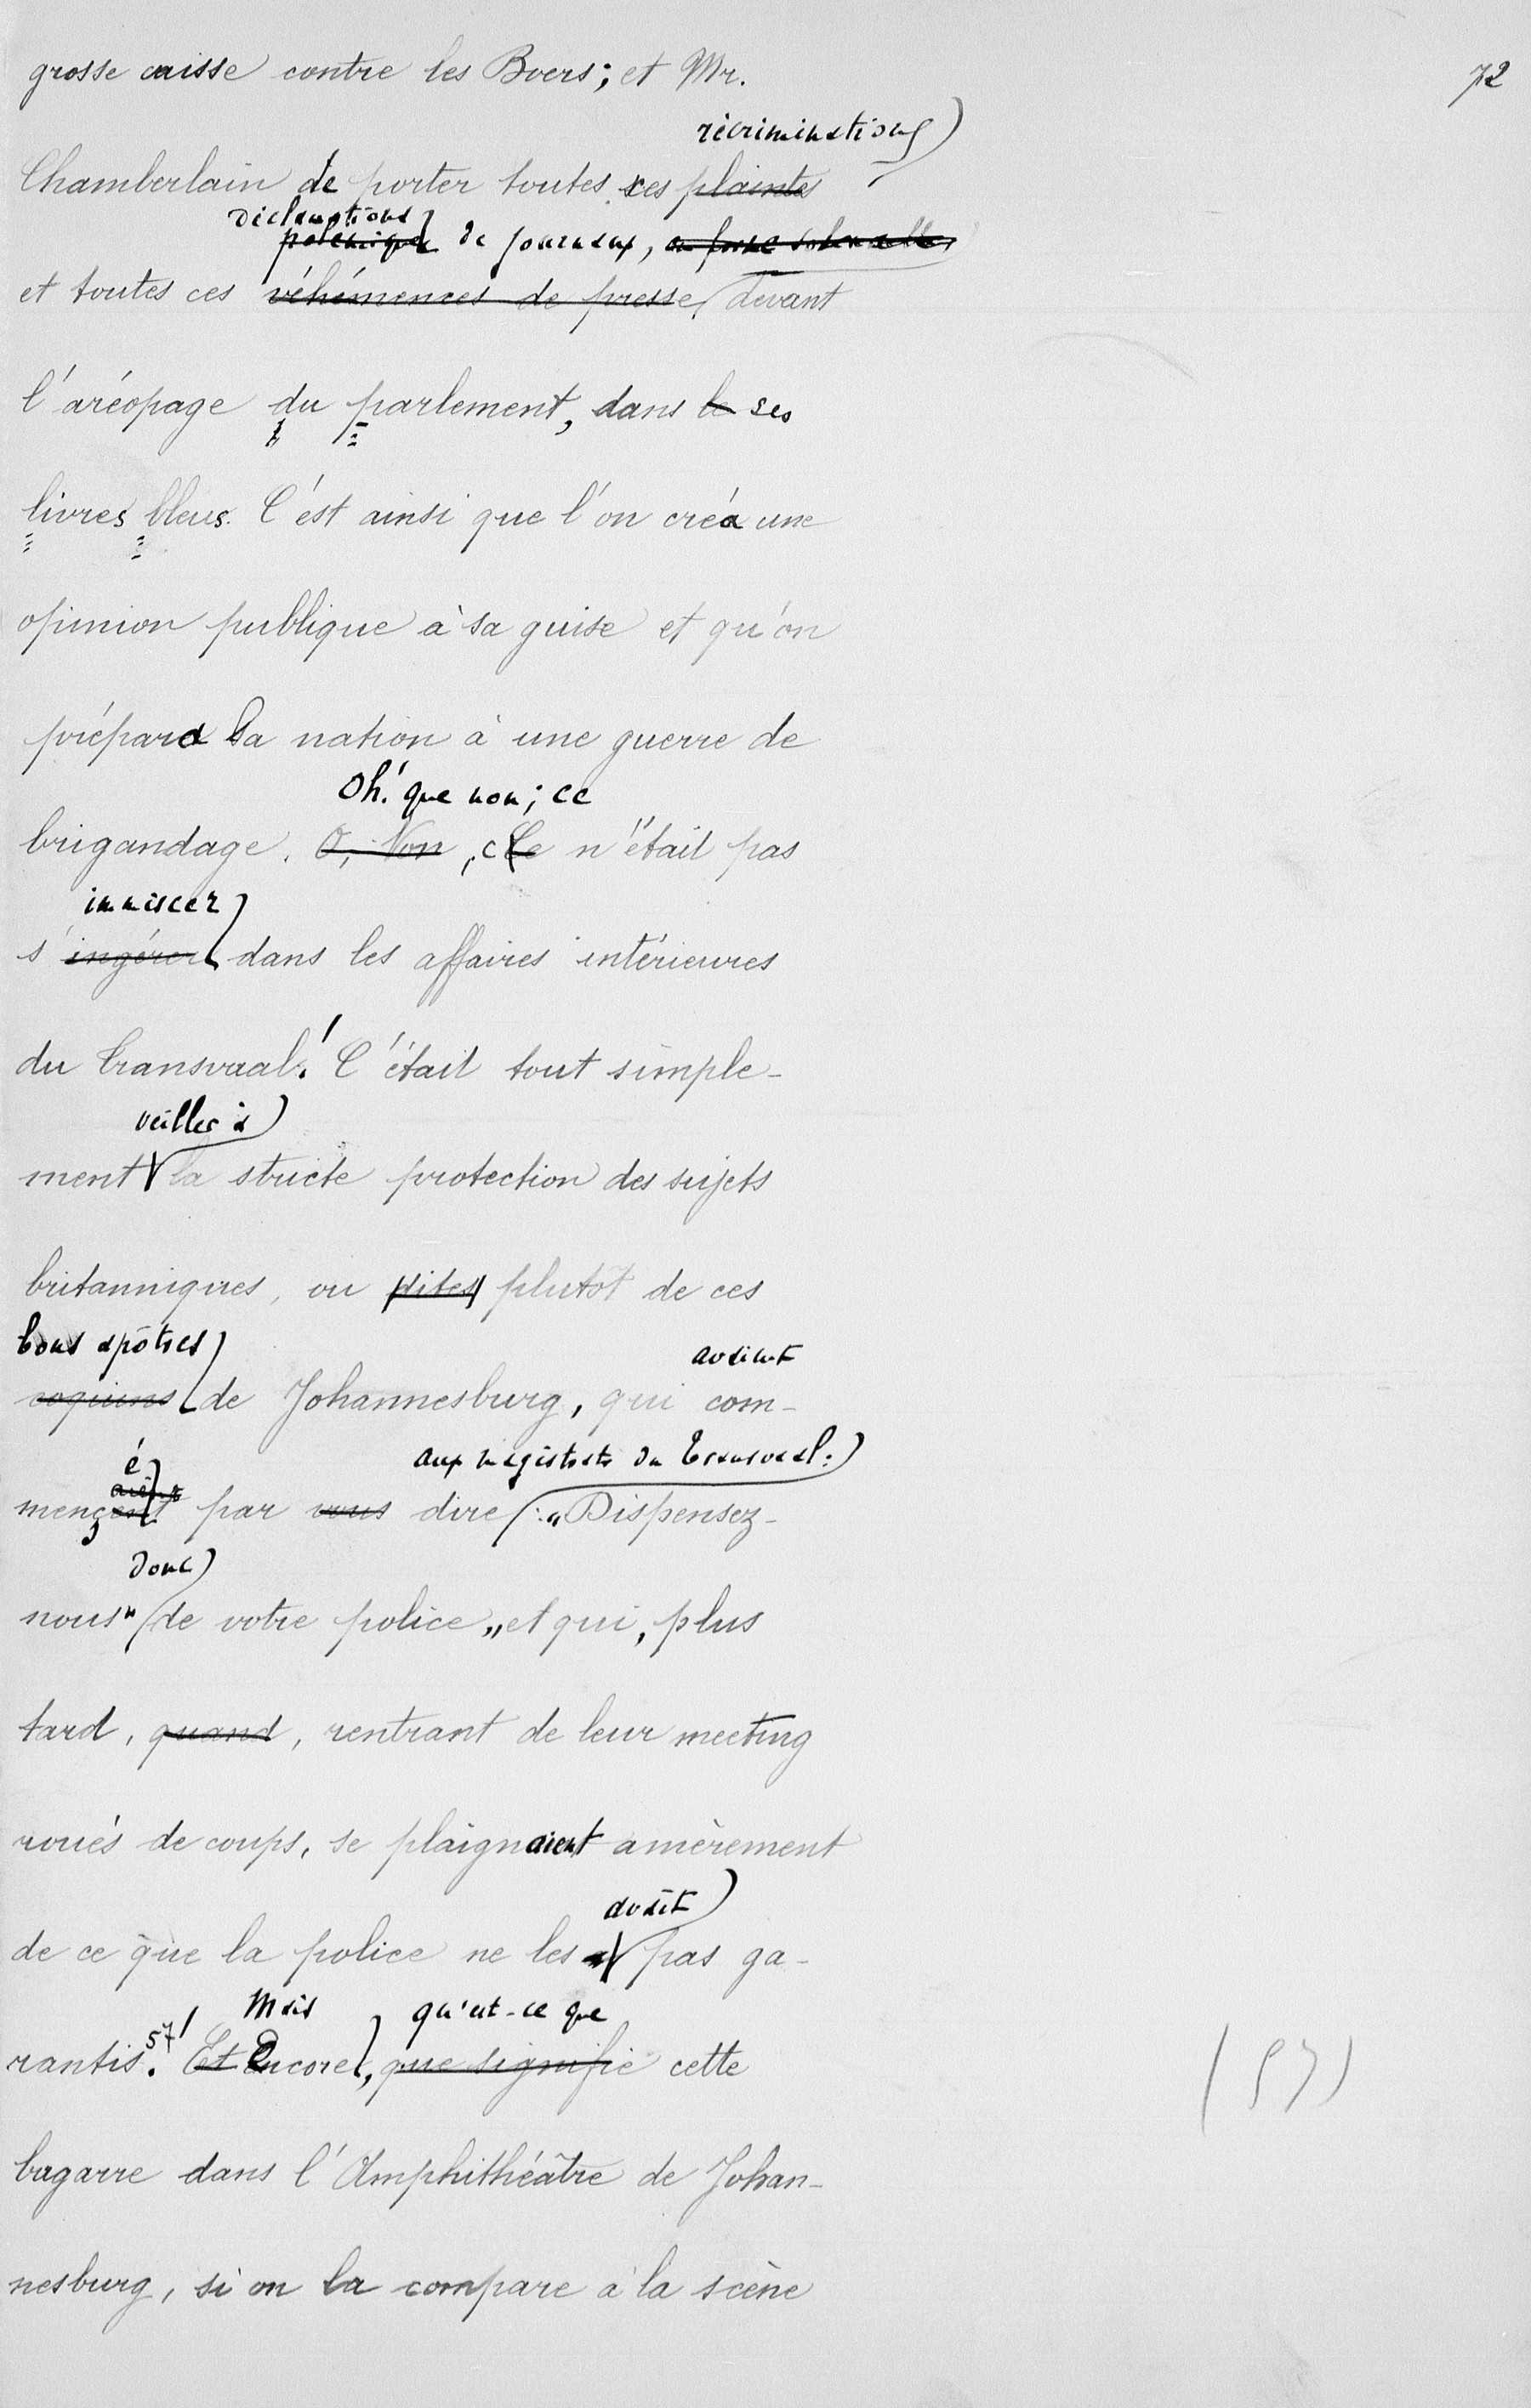 grosse caisse contre les Boers; et Mr.
72
récriminations
Chamberlain de porter toutes ces plaintes
déclamations
polémiques de journaux,
et toutes ces véhémences de presse, devant
l'aréopage du parlement, dans le ses
livres bleus. C'est ainsi que l'on créa une
opinion publique à sa guise et qu'on
prépara la nation à une guerre de
Oh! que non; ce
brigandage. O, Non, ce n'était pas
immiscer
s'ingérer dans les affaires intérieures
du Transvaal! C'était tout simple-
veiller à
ment la stricte protection des sujets
britanniques, ou dites plutôt de ces
bons apôtres
avaient
coquins de Johannesburg, qui com-
é
aient
aux magistrats du Transvaal:
mençent par vous dire: „Dispensez-
donc
nous" de votre police„ et qui, plus
tard, quand, rentrant de leur meeting
roués de coups, se plaignaient amèrement
avait
de ce que la police ne les a pas ga-
Mais
qu'est-ce que
rantis.57! Et Encore, que signifie cette
(57)
bagarre dans l'Amphithéâtre de Johan-
nesburg, si on la compare à la scène